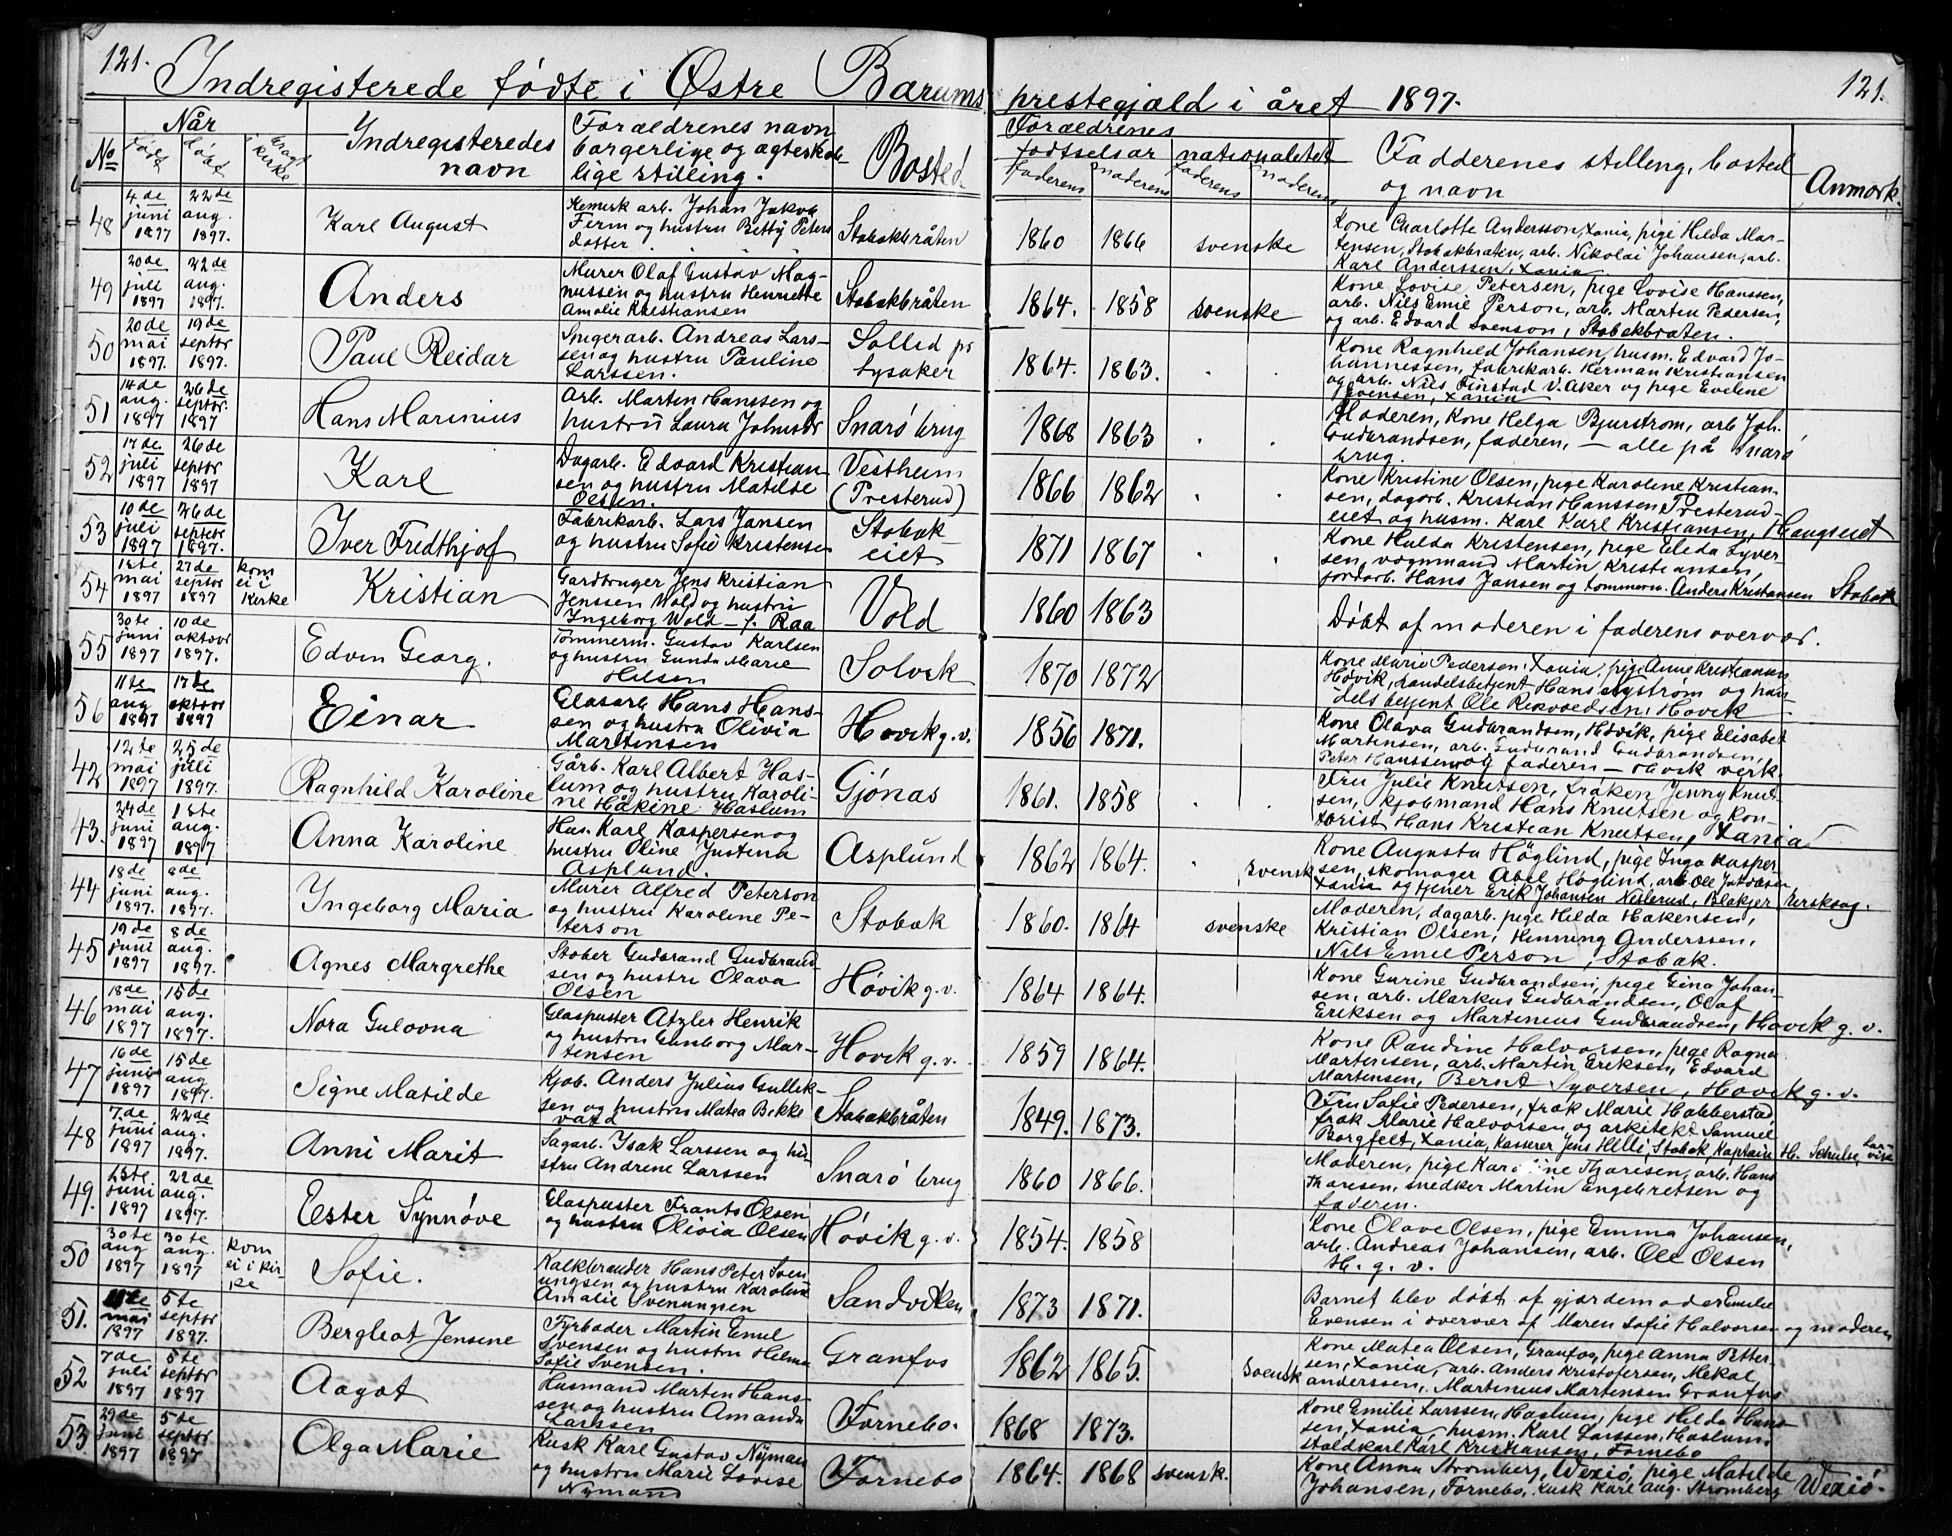 121.
Indregisterede fødte i Østre Bærums prestegjæld i året 1897.
121.
No
Når
født
døbt
bragt i kirke
Indregisteredes navn
Forældrenes navn borgerlige og ægteskabelige stilling.
Bosted.
Forældrenes
fødselsår
faderens
moderens
nationalitet
faderens
moderens
Fadderenes stilling, bosted og navn
Anmærk.
48 4de juni 1897 22de aug. 1897. Karl August
arb. Johan Jakob
Ferm og hustru Betty Peters
datter
Stabækbråten 1860 1866 svenske
Kone Charlotte Andersson, Xania, pige Hilda Mar-
tensen, Stabækbråten, arb. Nikolai Johansen, arb.
Karl Anderssen, Xania
49 20de juli 1897 22de aug. 1897. Anders
Murer Olaf Gustav Mag-
nussen og hustru Henriette
Amalie Kristiansen
Stabækbråten 1864. 1858 svenske
Kone Lovise Petersen, pige Lovise Hanssen,
arb. Nils Emil Person, arb. Martin Pedersen,
og arb. Edvard Svenson, Stabækbråten.
50 20de mai 1897. 19de septbr 1897. Paul Reidar
arb. Andreas Lars-
sen og hustru Pauline
Larssen.
Solled pr Lysaker 1864. 1863. . .
Kone Ragnhild Johansen, husm. Edvard Jo-
hannessen, fabrikarb. Herman Kristiansen
og arb. Nils Finstad V. Aker og pige Eveline
Evensen, Xania
51 14de aug. 1897 26de septbr. 1897 Hans Marinius
Arb. Martin Hanssen og
hustru Laura
Snarø brug 1868 1863 . .
Moderen, Kone Helga Bjurstrøm, arb Joh.
Gudbrandsen, faderen, — alle på Snarø
brug.
52 17de juli 1897 26de septbr 1897 Karl
Dagarb. Edvard Kristian
sen og hustru Matilde
Olsen.
Vestheim (Presterud) 1866 1862 . .
Kone Kristine Olsen, pige Karoline Kristian-
sen, dagarb. Kristian Hanssen Presterud-
eiet og husm. Karl Karl Kristiansen, Haugseiet
53 10de juli 1897 26de septbr 1897. Iver Fredthjof
Fabrikarb. Lars Jansen
og hustru Sofie Kristensen
Stabæk eiet 1871 1867 . .
Kone Hulda Kristensen, pige Elida Syver
sen, vognmand Martin Kristiansen,
jordarb. Hans Jansen og tømmerm. Anders Kristiansen Stabæk
54 mai 1897 27de septbr 1897 kom ei i kirke Kristian
Gardbruger Jens Kristian
Jenssen Wold og hustru
Ingeborg Wold — f. Raa
Vold 1860 1863
Døbt af moderen i faderens overvær.
55 30te juni 1897 10de oktobr 1897. Edvin Georg.
Tømmerm. Gustav Karlsen
og hustru Gunda Marie
Nilsen
Solvik 1870 1872
Kone Marie Pedersen, Xania, pige Anne Kristiansen
Høvik, handelsbetjent Hans Nystrøm og han-
delsbetjent Ole, Høvik
56 11te aug 1897 17de oktobr 1897 Einar
Glasarb. Hans Hans-
sen og hustru Olivia
Martinsen
Høvik g. v. 1856 1871.
Kone Olava Gudbrandsen, Høvik, pige Elisabet
Martinsen, arb. Gudbrand Gudbrandsen,
Peter Hanssen og faderen — Høvik verk.
42 12te mai 1897 25de juli 1897. Ragnhild Karoline
Gårb. Karl Albert Has-
lum og hustru Karoli-
ne Håkine Haslum
Gjønas 1861. 1858 . .
Fru Julie Knutsen, frøken Jenny Knut-
sen, kjøbmand Hans Knutsen og kon-
torist Hans Kristian Knutsen, Xania
43. 24de juni 1897 1ste aug. 1897 Anna Karoline
Hus. Karl Kaspersen og
hustru Oline Justina
Asplund.
Asplund 1862 1864. . svensk
Kone Augusta Höglind, pige Inga Kasper
sen, skomager Abel Höglind, arb. Ole Jakobsen
Xania og tjener Erik Johansen, Blakjer Urskog.
44 18de juni 1897. 8de aug. 1897. Ingeborg Maria
Murer Alfred Peterson
og hustru Karoline Pe-
terson
Stabæk 1860. 1864 svenske
Moderen, dagarb. pige Hilda Håkensen,
Kristian Olsen, Henning Anderssen,
Nils Emil Person, Stabæk.
45 19de juni 1897 8de aug. 1897. Agnes Margrethe
Støber Gudbrand Gudbrand-
sen og hustru Olava
Olsen
Høvik g. v. 1864 1864.
Kone Gurine Gudbrandsen, pige Gina Johan-
sen, arb. Markus Gudbrandsen, Olaf
Eriksen og Martinius Gudbrandsen, Høvik g. v.
46 18de mai 1897 15de aug. 1897. Nora Gulovna
Glaspuster Atzler Henrik
og hustru Gunborg Mar-
tinsen
Høvik g. v. 1859 1864.
Kone Randine Halvorsen, pige Ragna
Martinsen, arb. Martin Eriksen, Edvard
Martinsen, Bernt Syversen, Høvik g. v.
47 16de juni 1897 15de aug 1897. Signe Matilde
Kjøb. Anders Julius Gullik-
sen og hustru Matea Bække
vard
Stabækbråten 1849. 1873.
Fru Sofie Pedersen, frøk Marie Habberstad
frøk Marie Halvorsen og arkitekt Samuel
Borgfelt, Xania, Kasserer Jens Helli, Stabæk, Kaptein H. Schulse, Larvik
48 7.de juni 1897 22de aug. 1897. Anni Marit
Sagarb. Isak Larssen og hu-
stru Andrine Larssen
Snarø brug 1860 1866.
Moderen, pige Thoresen, arb. Hans
Thoresen, snedker Martin Engebretsen og
faderen.
49. 25te juni 1897 22de aug. 1897. Ester Synnøve
Glaspuster Frants Olsen
og hustru Olivia Olsen
Høvik g. v. 1854. 1858
Kone Olave Olsen, pige Emma Johansen,
arb. Andreas Johansen, arb. Ole Olsen
H. g. v.
50 30te aug 1897 30te aug. 1897 kom ei i kir-ke Sofie.
Kalkbrænder Hans Peter Sven
ungsen og hustru Karoline
Amalie Svenungsen
Sandviken 1873 1871.
Barnet blev døbt af gjordemoder Emilie
Evensen i overvær af Maren Sofie Halvorsen og moderen
51. mai 1897 5te septbr 1897. Bergliot Jensine
Fyrbøder Martin Emil
Svensen og hustru Hilma
Sofie Svensen.
Granfos 1862 1865. svensk
Kone Matea Olsen, Granfos, pige Anna Petter
sen, Xania, arb. Anders Kristofersen, Mekal
anderssen, Martinius Martinsen Granfos
52 7de juli 1897 5te septbr 1897 Aagot
Husmand Martin Hans-
sen og hustru Amanda
Larssen
Fornebo. 1868 1873.
Kone Emilie Larssen, Haslum, pige Hilda Hans
sen, Xania, husm. Karl Larssen, Haslum,
staldkarl Karl Kristiansen, Fornebo
53 29de juni 1897 5de septbr 1897 Olga Marie
Kusk Karl Gustav Nyman
og hustru Marie Lovise
Nymand
Fornebo 1864. 1868 svensk.
Kone Anna Stromberg, Wexiö, pige Matilde
Johansen, Fornebo, Kusk Karl Aug. Stromberg Wexiö.